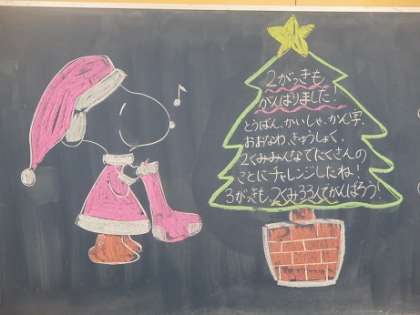 2がっきも
がんばりました!
とうばん、かいしゃ、かん字、
おおなわ、きゅうしょく、
2くみみんなでたくさんの
ことにチャレンジしたね!
3がっきも、2くみ33人でがんばろう!